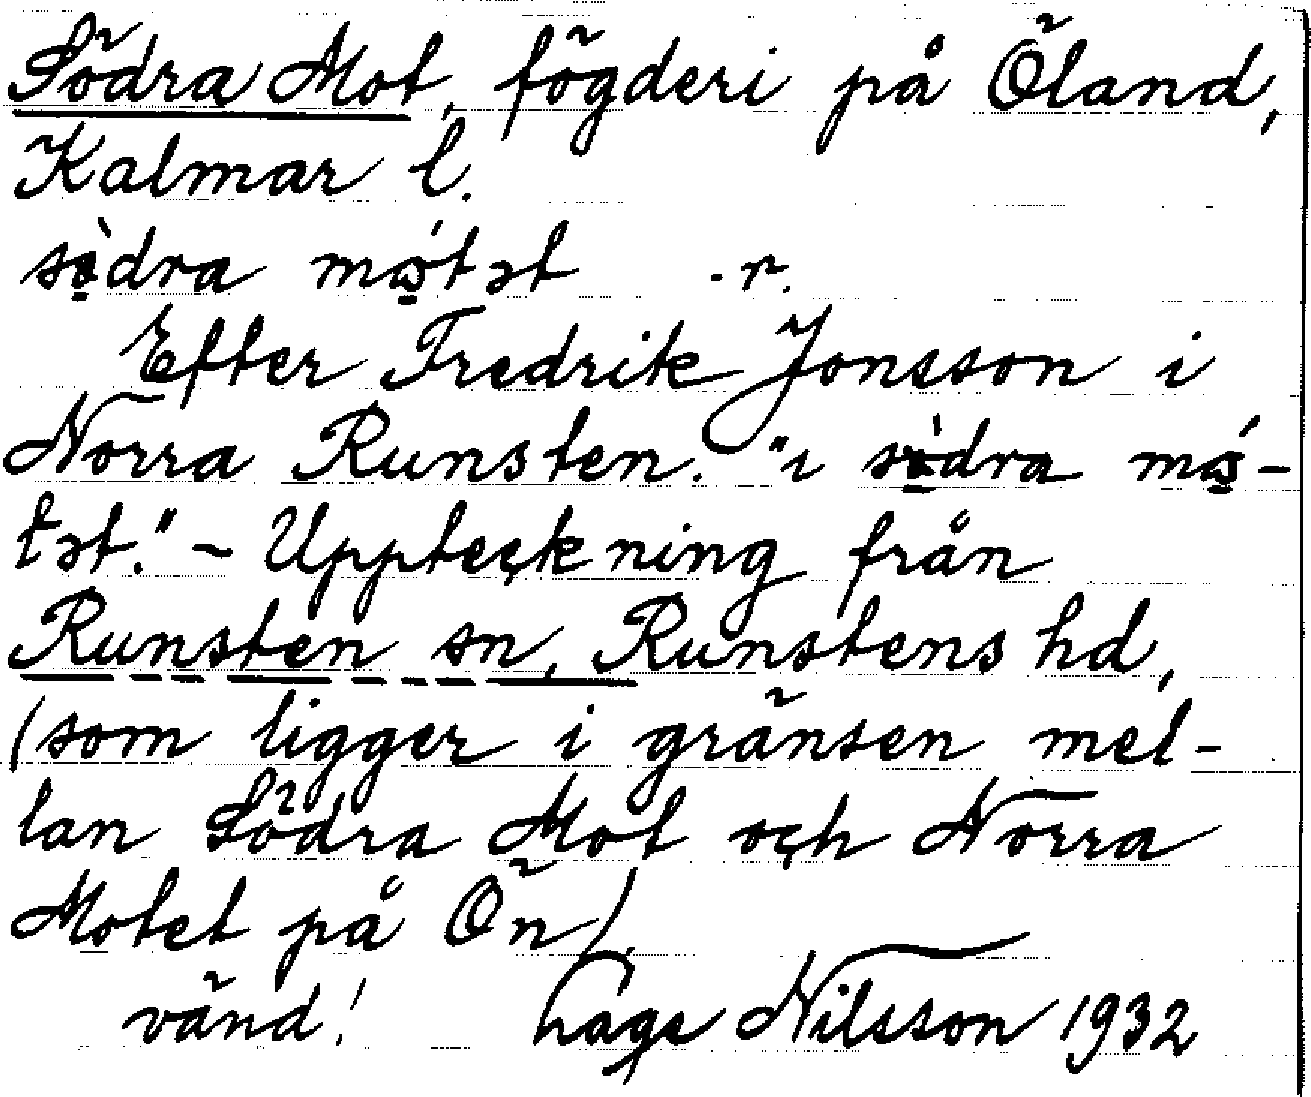 Södra Mot, fögderi på Öland,
Kalmar l.
sø̱̀dra mǫ́tət -r.
Efter Fredrik Jonsson i
Norra Runsten. "i sø̱̀dra mǫ́-
tət." - Uppteckning från
Runsten sn, Runstens hd,
(som ligger i gränsen mel-
lan Södra Mot och Norra
Motet på Ön).
vänd! Lage Nilsson 1932